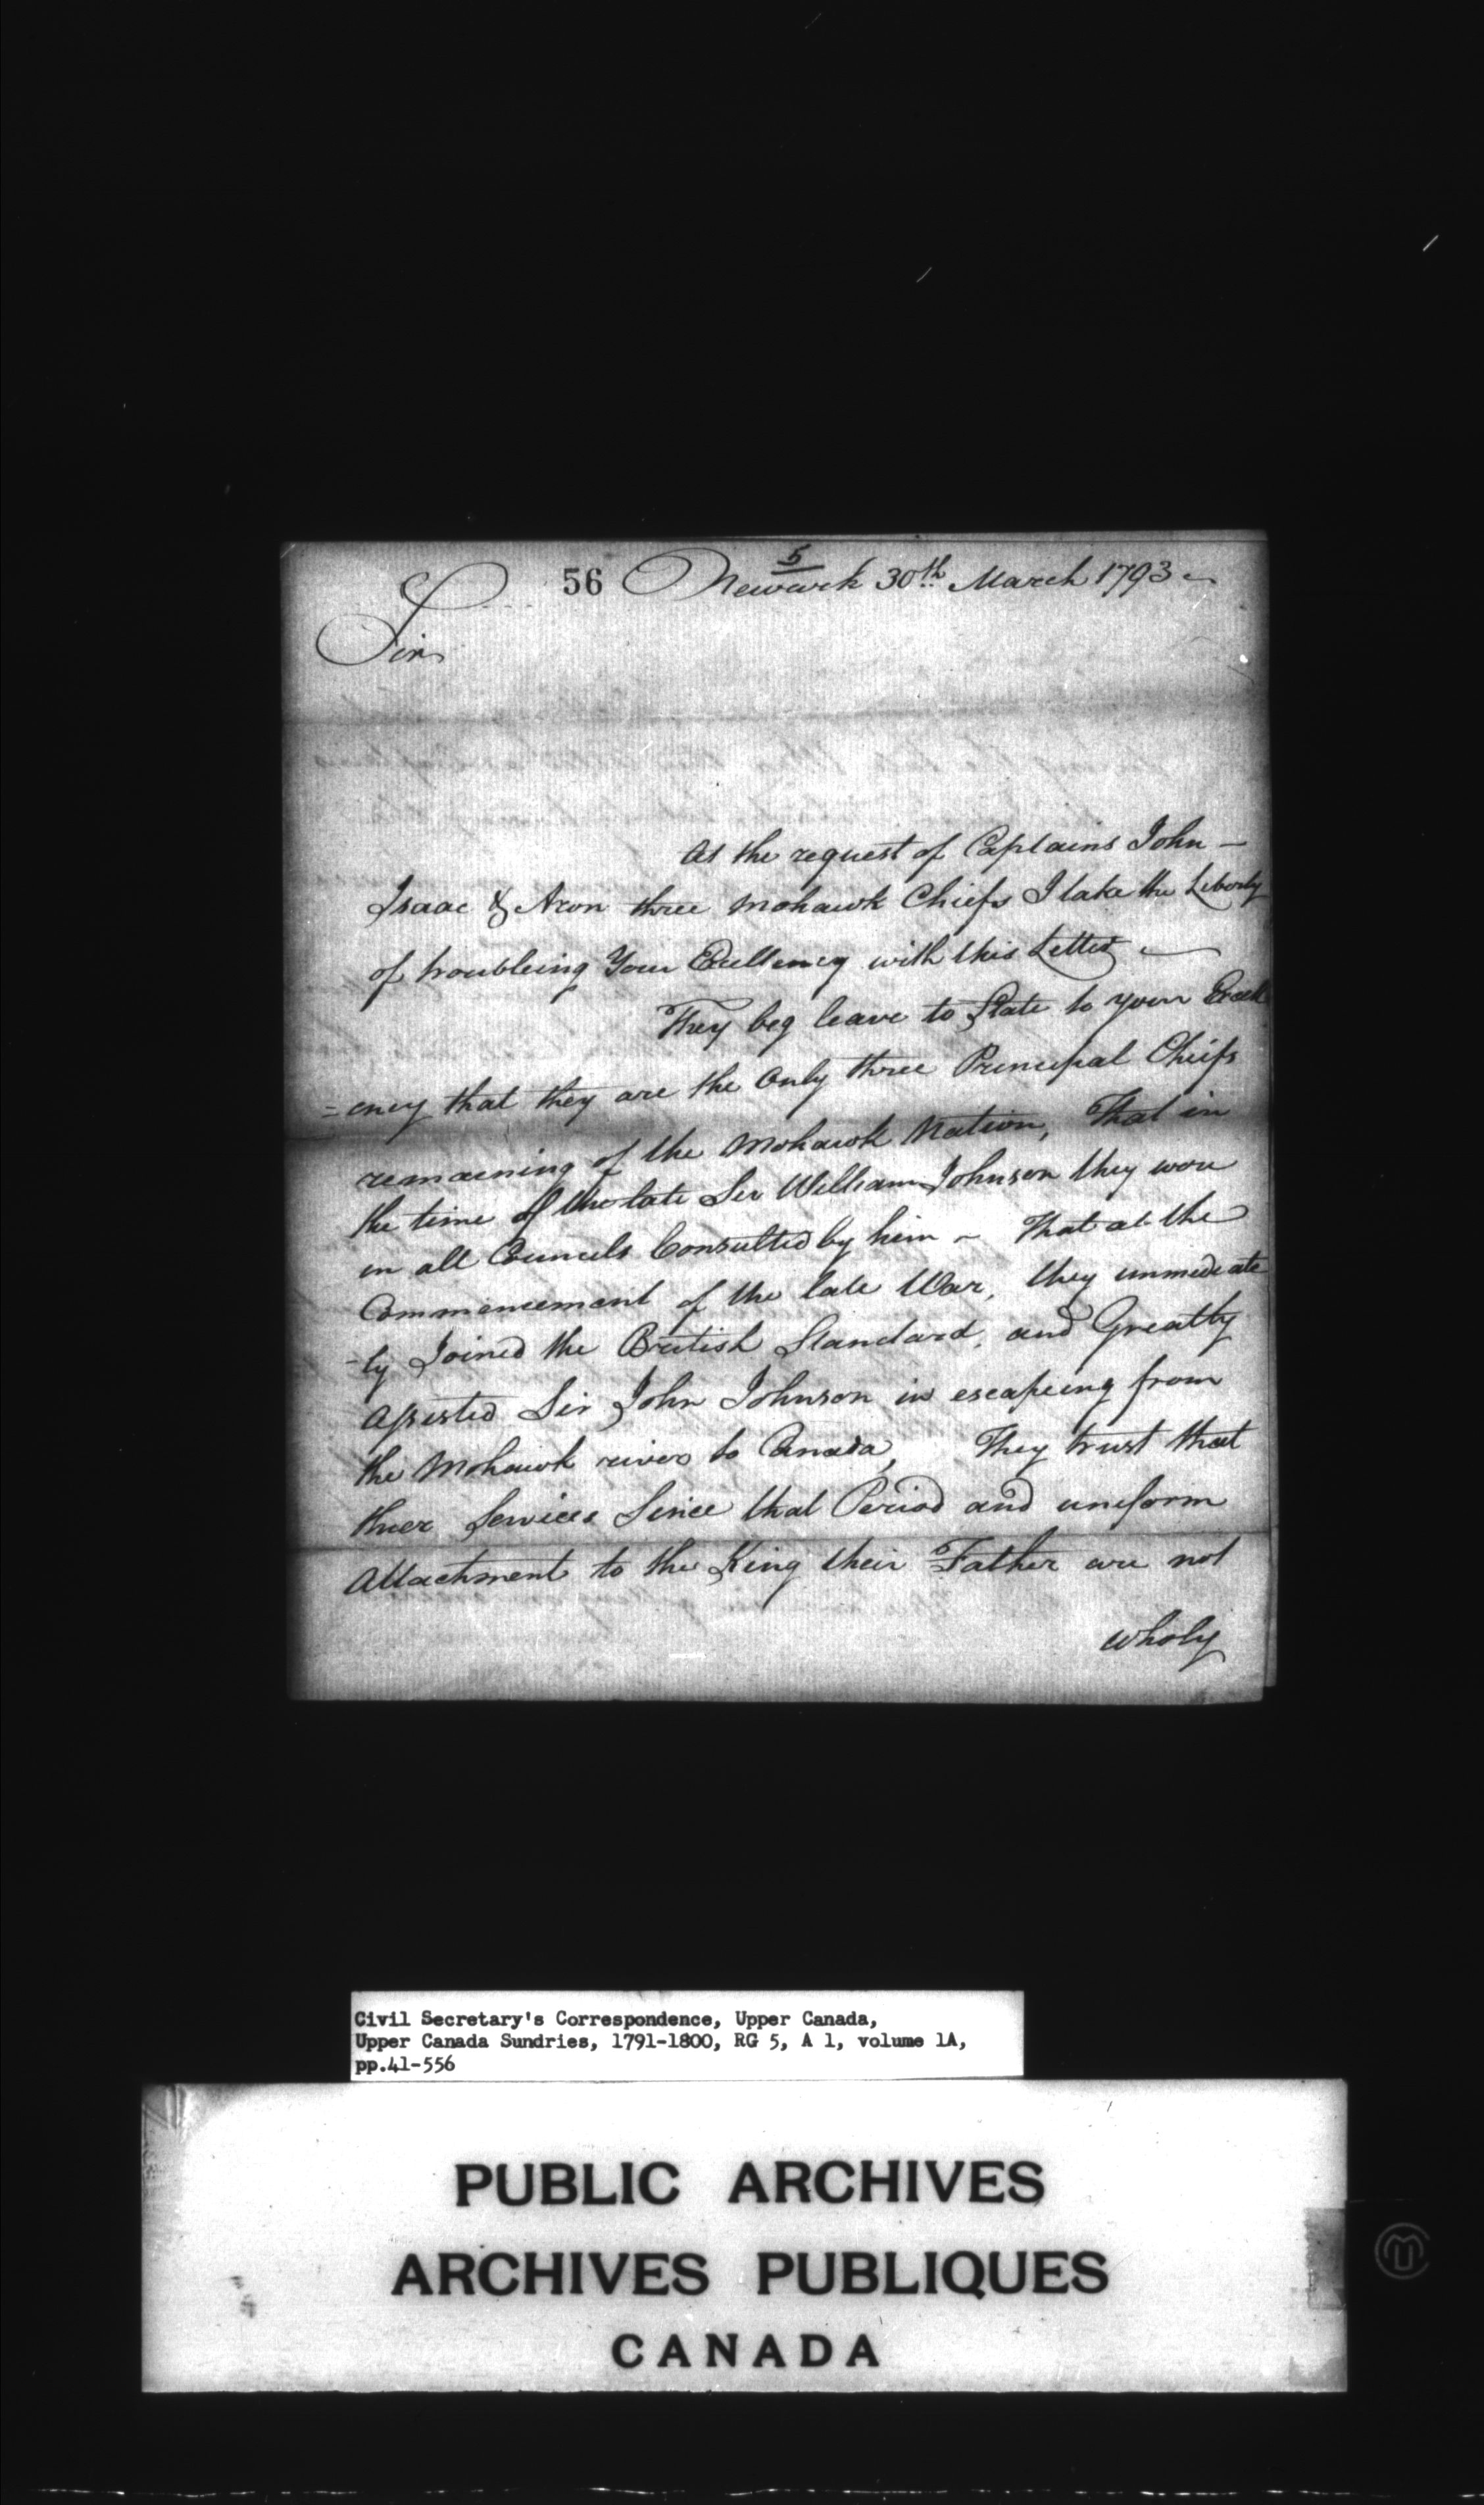 5
56 Newark 30th March 1793
Sir
At the request of Captains John —
Isaac & Aron three Mohawk Chiefs I take the Liberty
of troubleing Your Excellency with this Letter —
They beg leave to State to your Excell
=ency that they are the Only three Principal Chiefs
remaining of the Mohawk Nation, That in
the time of the late Sir William Johnson they were
in all Councels Consulted by him - That at the
Commencement of the late War, they immediate
-ly Joined the British Standard, and Greatly
Assisted Sir John Johnson in escapeing from
the Mohawk river to Canada, They trust that
thier Services Since that Period and uniform
Attachment to the King their Father are not
wholy
Civil Secretary's Correspondence, Upper Canada,
Upper Canada Sundries, 1791-1800, RG 5, A 1, volume 1A,
pp.41-556
PUBLIC ARCHIVES
ARCHIVES PUBLIQUES
CANADA